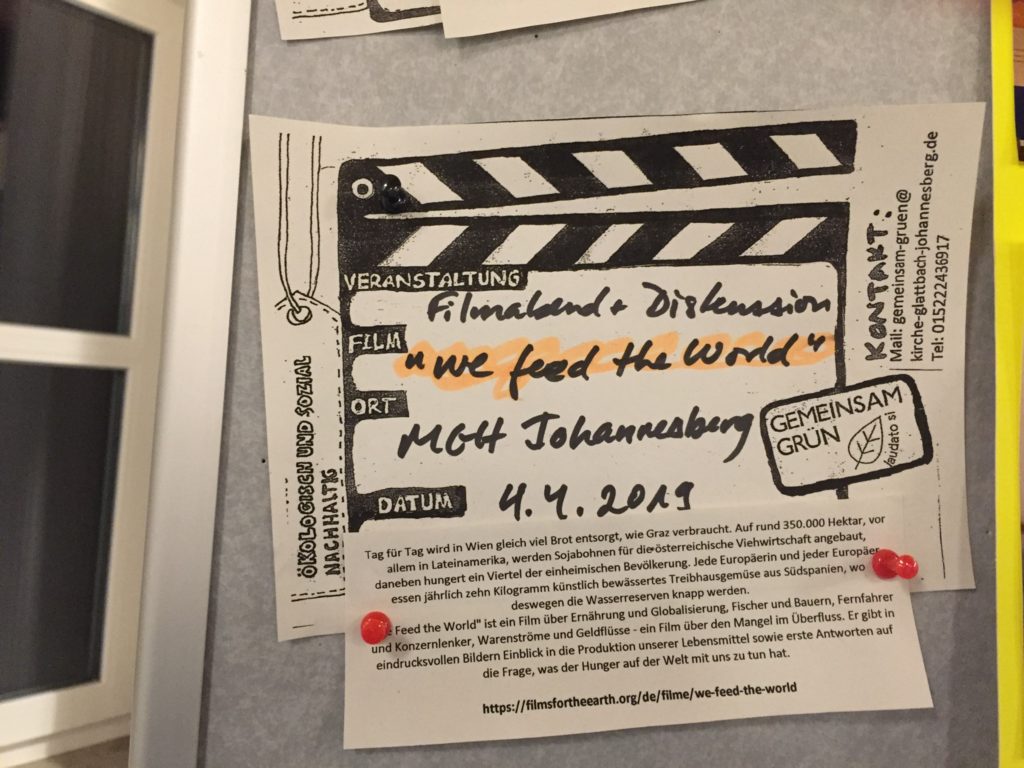 VERANSTALTUNG
Filmabend + Diskussion
FILM
"we feed the World"
ORT
MGH Johannesberg
DATUM
4.4.2019
ÖKOLOGISCH UND SOZIAL
NACHHALTIG
KONTAKT:
Mail: gemeinsam-gruen@
kirche-glattbach-johannesberg.de
Tel: 015222436917
GEMEINSAM
GRÜN
laudato si
Tag für Tag wird in Wien gleich viel Brot entsorgt, wie Graz verbraucht. Auf rund 350.000 Hektar, vor
allem in Lateinamerika, werden Sojabohnen für die österreichische Viehwirtschaft angebaut,
daneben hungert ein Viertel der einheimischen Bevölkerung. Jede Europäerin und jeder Europäer
essen jährlich zehn Kilogramm künstlich bewässertes Treibhausgemüse aus Südspanien, wo
deswegen die Wasserreserven knapp werden.
Feed the World" ist ein Film über Ernährung und Globalisierung, Fischer und Bauern, Fernfahrer
und Konzernlenker, Warenströme und Geldflüsse - ein Film über den Mangel im Überfluss. Er gibt in
eindrucksvollen Bildern Einblick in die Produktion unserer Lebensmittel sowie erste Antworten auf
die Frage, was der Hunger auf der Welt mit uns zu tun hat.
https://filmsfortheearth.org/de/filme/we-feed-the-world